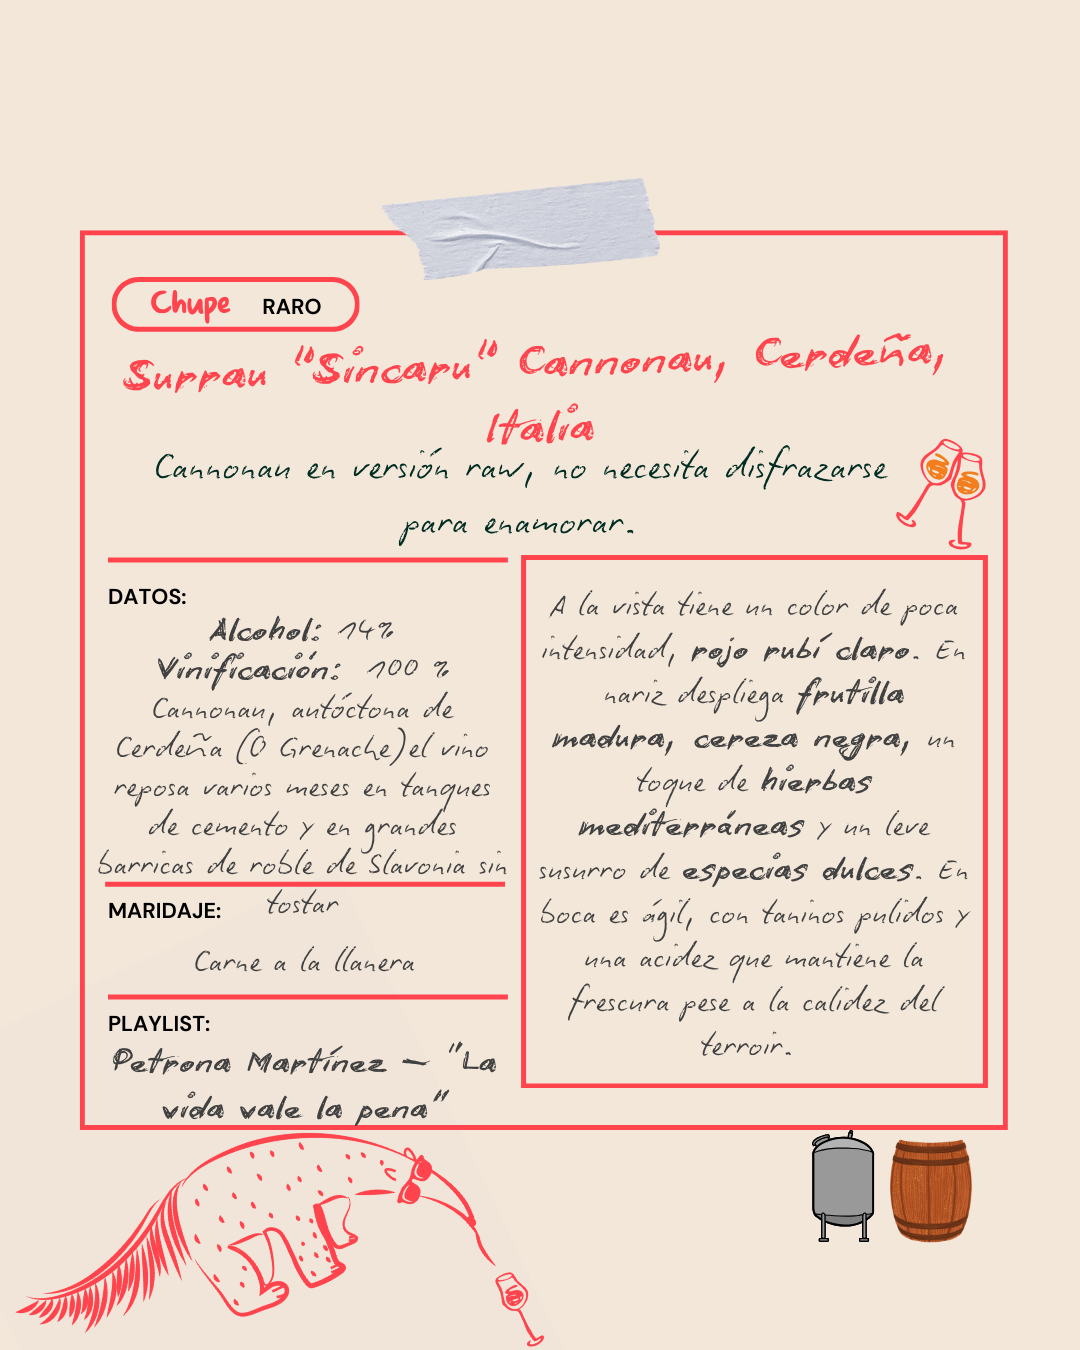 Chupe RARO
Surrau "Sincaru" Cannonau, Cerdeña,
Italia
Cannonau en versión raw, no necesita disfrazarse
para enamorar.
DATOS:
Alcohol: 14%
Vinificación: 100 %
Cannonau, autóctona de
Cerdeña (O Grenache)el vino
reposa varios meses en tanques
de cemento y en grandes
barricas de roble de Slavonia sin
tostar
MARIDAJE:
Carne a la llanera
PLAYLIST:
Petrona Martínez – "La
vida vale la pena"
A la vista tiene un color de poca
intensidad, rojo rubí claro. En
nariz despliega frutilla
madura, cereza negra, un
toque de hierbas
mediterráneas y un leve
susurro de especias dulces. En
boca es ágil, con taninos pulidos y
una acidez que mantiene la
frescura pese a la calidez del
terroir.